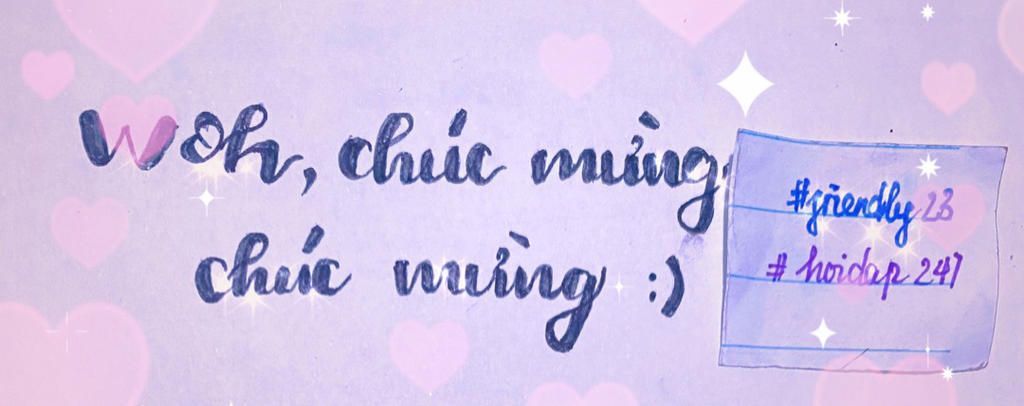 Woh, chúc mừng
chúc mừng :)
#friendly 23
# hoidap 247